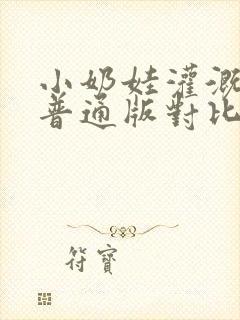 小奶娃灌溉
普通版對比
符寶